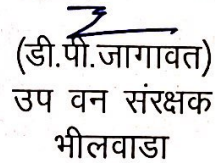 (डी.पी.जागावत)
उप वन संरक्षक
भीलवाडा